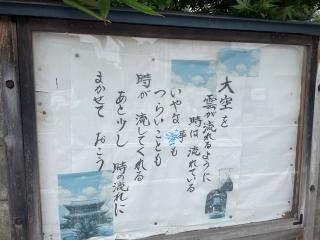 大空を
雲が流れるように
時は流れている
いやな事も
つらいことも
時が流してくれる
あと少し時の流れに
まかせておこう